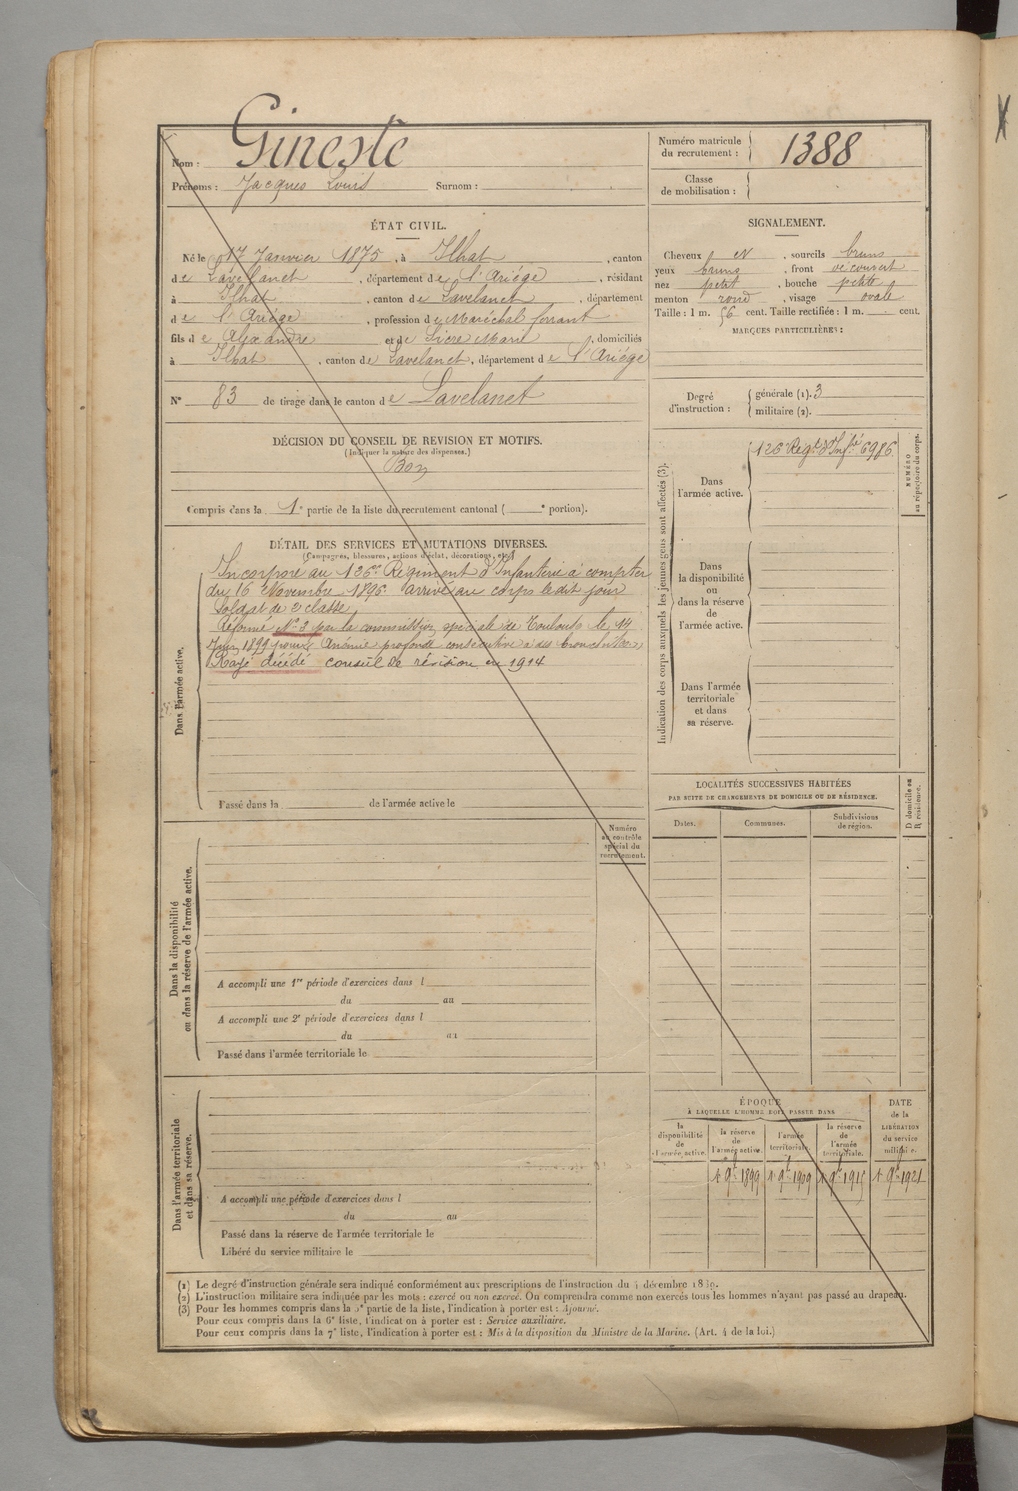 Nom : Gineste
Prénoms : Jacques Louis Surnom :
Numéro matricule du recrutement : 1388
Classe de mobilisation :
ÉTAT CIVIL.
Né le 17 Janvier 1875, à Ilhat, canton
de Lavelanet, département de l'Ariége, résidant
à Ilhat, canton de Lavelanet, département
de l'Ariége, profession de Maréchal ferrant
fils de Alexandre et de Sicre Marie, domiciliés
à Ilhat, canton de Lavelanet, département de l'Ariége
N° 83 de tirage dans le canton de Lavelanet
SIGNALEMENT.
Cheveux N, sourcils bruns
yeux bruns, front découvert
nez petit, bouche petite
menton rond, visage ovale
Taille : 1 m. 56 cent. Taille rectifiée : 1 m. cent.
MARQUES PARTICULIÈRES :
Degré d'instruction : générale (1). 3
militaire (2).
DÉCISION DU CONSEIL DE REVISION ET MOTIFS.
(Indiquer la nature des dispenses.)
Bon
Compris dans la 1e partie de la liste du recrutement cantonal ( e portion).
DÉTAIL DES SERVICES ET MUTATIONS DIVERSES.
(Campagnes, blessures, actions d'éclat, décorations, etc.)
Dans l'armée active.
Incorporé au 126e Régiment d'Infanterie à compter
du 16 Novembre 1896 arrivé au corps le dit jour
Soldat de 2e classe
Réformé N° 2 par la commission spéciale de Toulouse le 14
Juin 1899 pour Anémie profonde consécutive à des bronchites
Rayé décédé conseil de révision en 1914
Passé dans la de l'armée active le
Indication des corps auxquels les jeunes gens sont affectés (3).
NUMÉRO au répertoire du corps.
Dans l'armée active.
126e Régt d'Infie 6986
Dans la disponibilité ou dans la réserve de l'armée active.
Dans l'armée territoriale et dans sa réserve.
LOCALITÉS SUCCESSIVES HABITÉES
PAR SUITE DE CHANGEMENTS DE DOMICILE OU DE RÉSIDENCE.
Dates. Communes. Subdivisions de région.
D domicile ou R résidence.
Dans la disponibilité ou dans la réserve de l'armée active.
Numéro au contrôle spécial du recrutement.
A accompli une 1re période d'exercices dans l
du au
A accompli une 2e période d'exercices dans l
du au
Passé dans l'armée territoriale le
Dans l'armée territoriale et dans sa réserve.
A accompli une période d'exercices dans l
du au
Passé dans la réserve de l'armée territoriale le
Libéré du service militaire le
ÉPOQUE
À LAQUELLE L'HOMME DOIT PASSER DANS
la disponibilité de l'armée active.
la réserve de l'armée active.
l'armée territoriale.
la réserve de l'armée territoriale.
DATE de la LIBÉRATION du service militaire.
1r 9bre 1899 1r 9bre 1909 1r 9bre 1915 1r 9bre 1921
(1) Le degré d'instruction générale sera indiqué conformément aux prescriptions de l'instruction du 4 décembre 1889.
(2) L'instruction militaire sera indiquée par les mots : exercé ou non exercé. On comprendra comme non exercés tous les hommes n'ayant pas passé au drapeau.
(3) Pour les hommes compris dans la 5e partie de la liste, l'indication à porter est : Ajourné.
Pour ceux compris dans la 6e liste, l'indication à porter est : Service auxiliaire.
Pour ceux compris dans la 7e liste, l'indication à porter est : Mis à la disposition du Ministre de la Marine. (Art. 4 de la loi.)